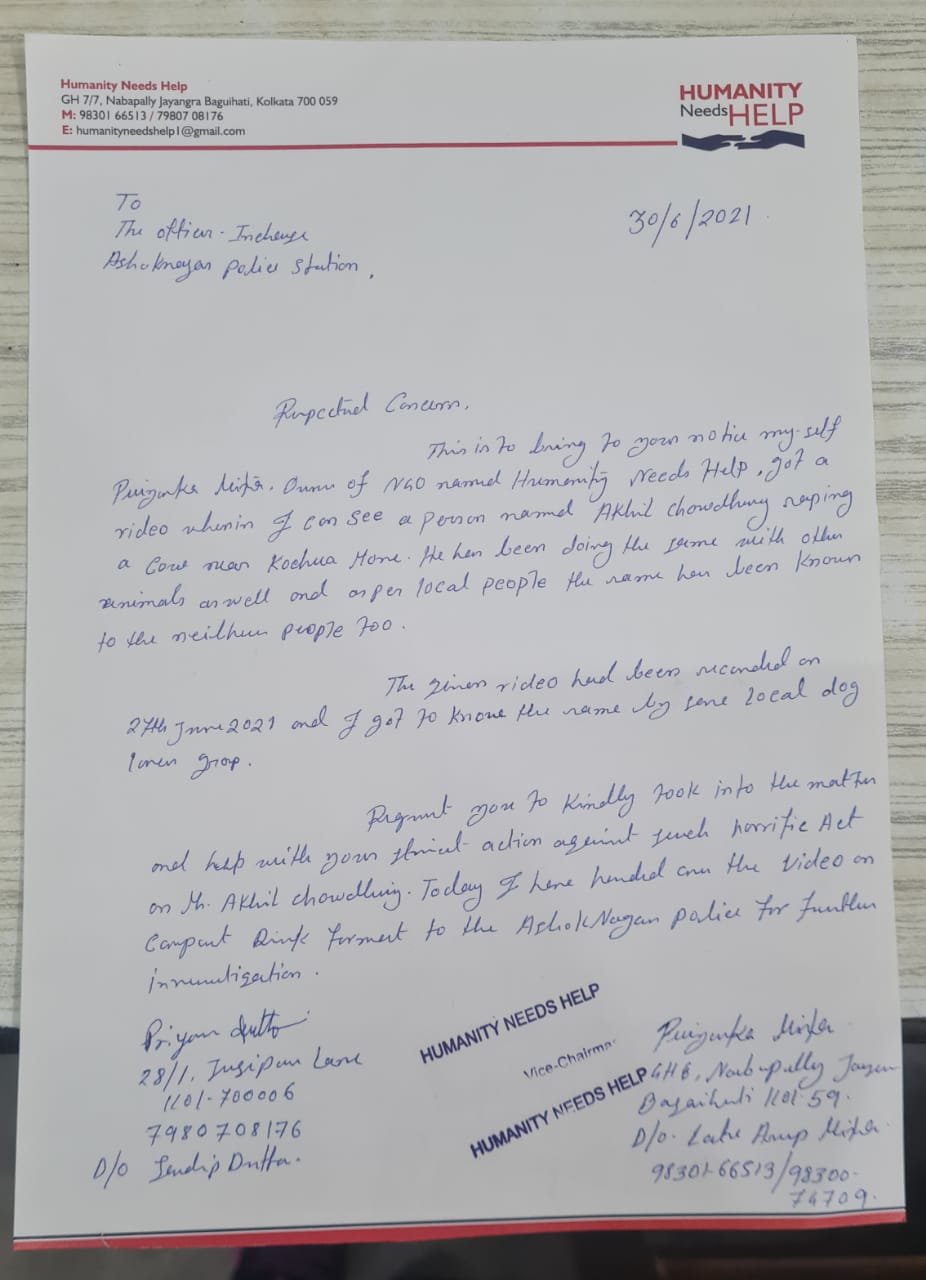 Humanity Needs Help
GH 7/7, Nabapally Jayangra Baguihati, Kolkata 700 059
M: 98301 66513 / 79807 08176
E: humanityneedshelp1@gmail.com
HUMANITY
Needs HELP
To
The officer-Incharge
Ashoknagar police station,
30/6/2021
Respected Concern,
This is to bring to your notice my-self
Priyanka Mitra. Owner of NGO named Humanity Needs Help, got a
video wherein I can see a person named Akhil chowdhury raping
a Cow near Kochua More. He has been doing the same with other
animals as well and as per local people the same has been known
to the people too.
The given video had been recorded on
27th June 2021 and I got to know the same by some local dog
lover group.
Request you to kindly look into the matter
and help with your strict action against such horrific Act
on Mr. Akhil chowdhury. Today I have handed over the video on
Compact Disk format to the AshokNagar police for further
investigation.
Priyam Dutta
28/1, Lane
Kol-700006
7980708176
D/o Sandip Dutta.
HUMANITY NEEDS HELP
Vice-Chairma
HUMANITY NEEDS HELP
Priyanka Mitra
Nabapally
Baguihati Kol-59.
D/o. Late Anup Mitra.
98301-66513/98300-
74709.